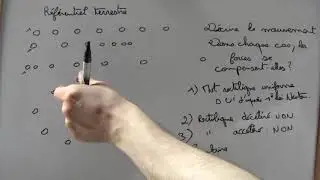 Référentiel terrestre
Décrire le mouvement
Dans chaque cas, les
forces se
compensent-elles ?
1) Mvt rectiligne uniforme
OUI d'après
2) Rectiligne décéléré NON
3) " accéléré NON